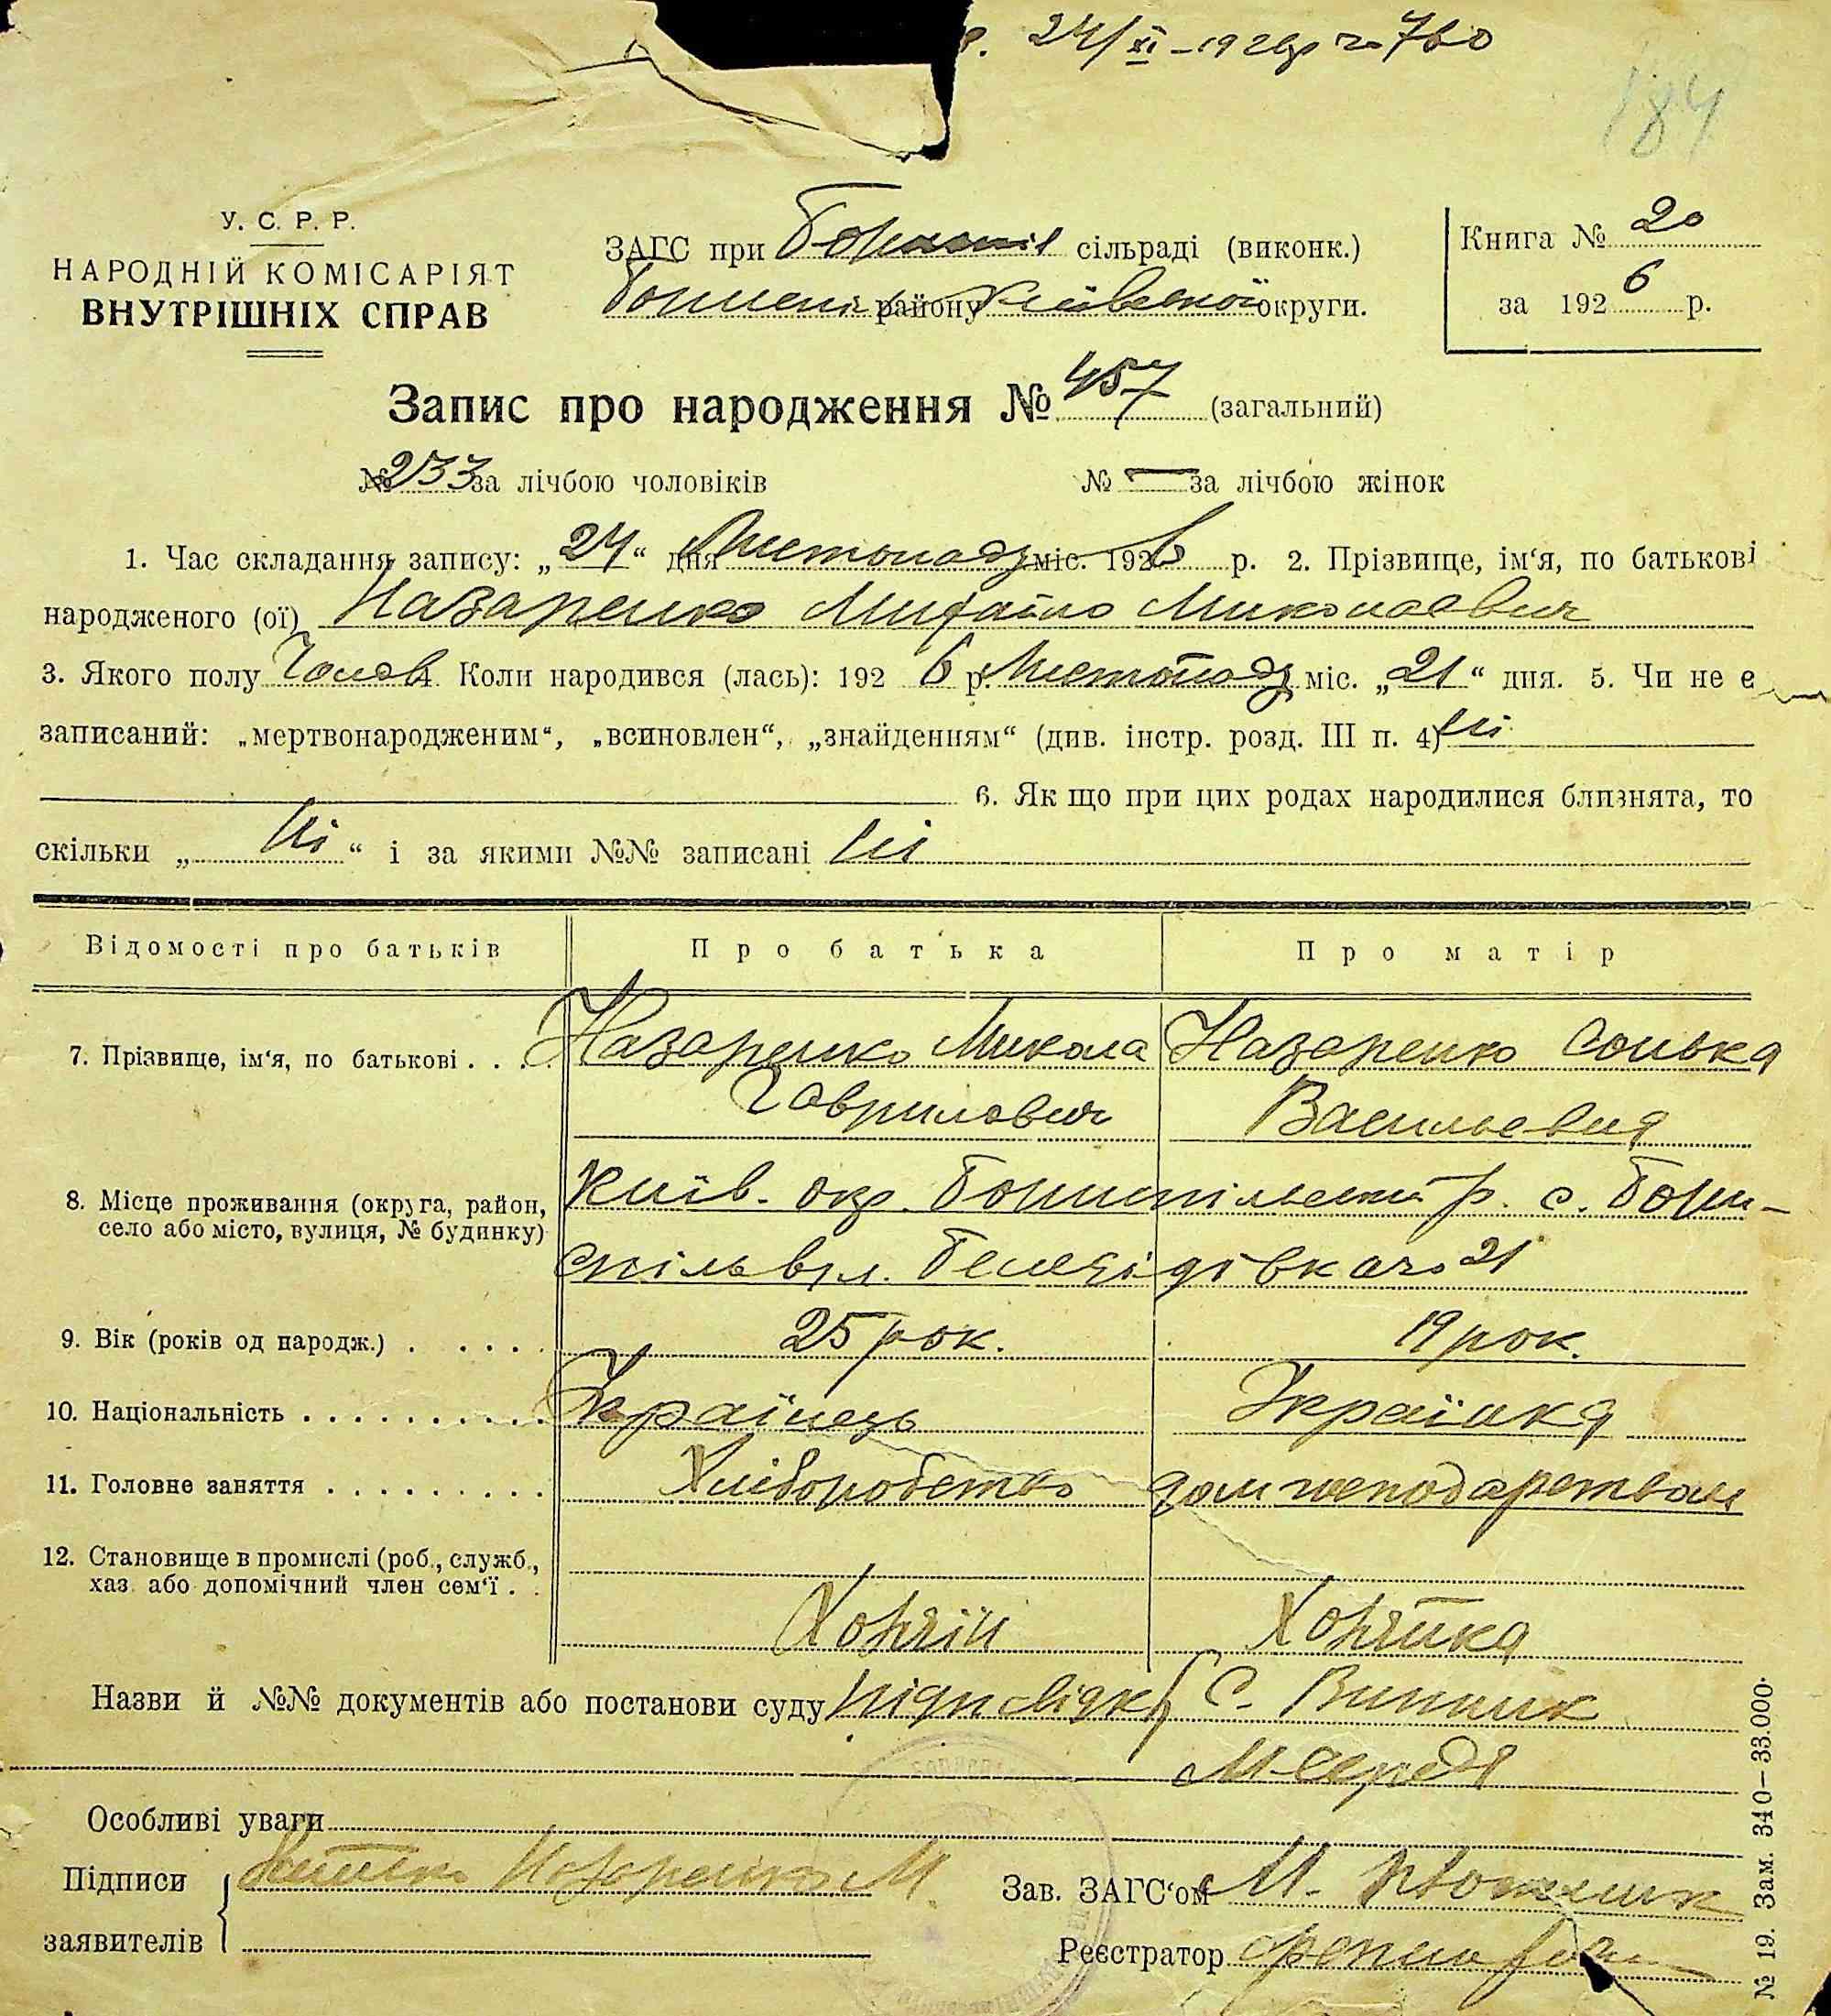 24/XI-1926р №760
184
У. С. Р. Р.
НАРОДНІЙ КОМІСАРІЯТ
ВНУТРІШНІХ СПРАВ
ЗАГС при сільраді (виконк.)
району Київської округи.
Книга № 20
за 1926 р.
Запис про народження № 457 (загальний)
№ 233 за лічбою чоловіків № — за лічбою жінок
1. Час складання запису: „24“ дня Листопаду міс. 1926 р. 2. Прізвище, ім‘я, по батькові
народженого (ої) Назаренко Михайло Миколаевич
3. Якого полу Чолов 4. Коли народився (лась): 1926 р. Листопаду міс. „21“ дня. 5. Чи не є
записаний: „мертвонародженим“, „всиновлен“, „знайденням“ (див. інстр. розд. III п. 4) Ні
6. Як що при цих родах народилися близнята, то
скільки „ Ні “ і за якими №№ записані Ні
Відомості про батьків Про батька Про матір
7. Прізвище, ім‘я, по батькові . . . . Назаренко Микола Назаренко Сонька
Гаврилович Васильевна
8. Місце проживання (округа, район,
село або місто, вулиця, № будинку)
Київ. окр. Бориспільський р. с. Бори-
спіль вул. № 21
9. Вік (років од народж.) . . . . . 25 рок. 19 рок.
10. Національність . . . . . . . . . . Українець Українка
11. Головне заняття . . . . . . . . . . Хліборобство дом господарством
12. Становище в промислі (роб., служб.,
хаз. або допомічний член сем‘ї . .
Хозяїн Хозяйка
Назви й №№ документів або постанови суду С. Винник
М Середа
Особливі уваги
Підписи Назаренко М.
заявителів
Зав. ЗАГС‘ом М.
Реєстратор
№ 19. Зам. 340–33.000.